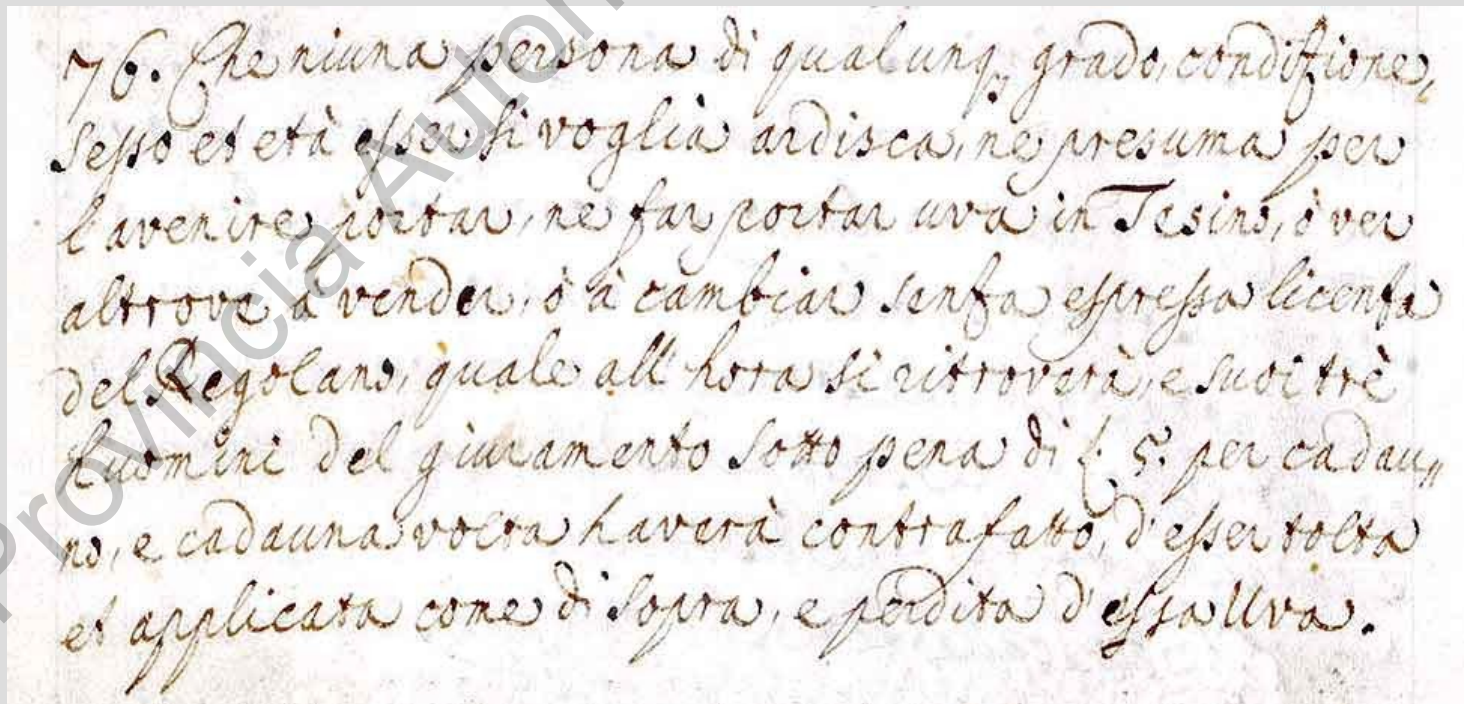 76. Che niuna persona di qualunq,, grado, condizione,
sesso et età esser si voglia ardisca, ne presuma per
l'avenire portar, ne far portar uva in Tesino, ò ver
altrove à vender, ò à cambiar senza espressa licenza
del Regolano, quale all' hora si ritroverà, e suoi trè
huomini del giuramento sotto pena di £. 5. per cadau,,
no, e cadauna volta haverà contrafatto, d'esser tolta
et applicata come di sopra, e perdita d'essa Uva.
Provincia Auton